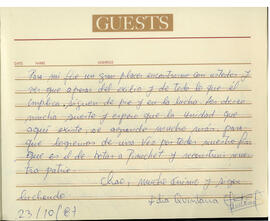 GUESTS
DATE NAME ADDRESS
Para mi fue un gran placer encontrarme con ustedes y
ver que a pesar del exito y de todo lo que el
implica, siguen de pie y en la lucha. Les deseo
mucha suerte y espero que la unidad que
aqui existe, se agrande mucho más, para
que logremos de una vez por todas nuestro fin
que es el de botar a Pinochet y reconstruir nues-
tra patria.
Chao, mucho ánimo y sigan
luchando.
Quintana
23/10/87